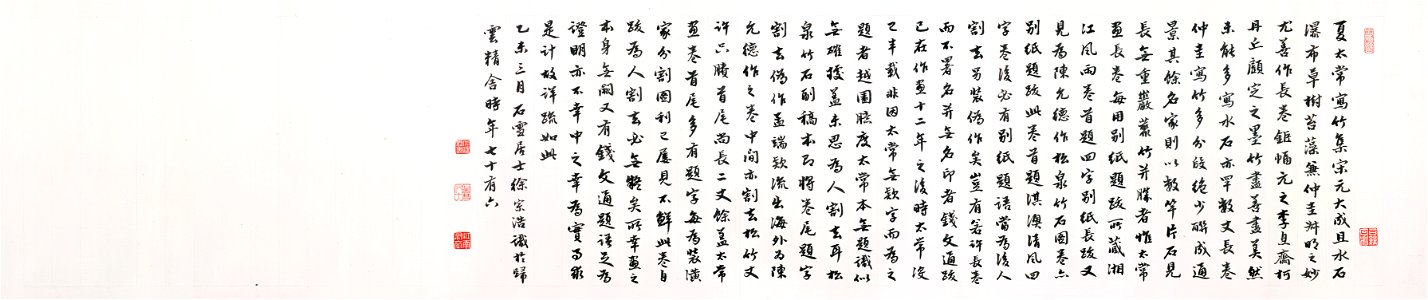 夏太常寫竹集宋元大成且水石
瀑布草樹苔藻無仲圭舛明之妙
尤善作長卷鉅幅元之李息齋柯
丹丘顧定之墨竹盡善盡美然
未能多寫水石亦罕數丈長卷
仲圭寫竹多分段絕少聯成通
景其餘名家則以數竿片石見
長無重巖叢竹并勝者惟太常
畫長卷每用別紙題跋所藏湘
江風雨卷首題四字別紙長跋又
見為陳允德作松泉竹石圖卷亦
別紙題跋此卷首題淇澳清風四
字卷後必有別紙題語當為後人
割去另裝偽作矣豈有若許長卷
而不署名并無名印者錢文通跋
已在作畫十二年之後時太常沒
已半載非因太常無款字而為之
題者越園臆度太常本無題識似
無確據蓋未思為人割去耳松
泉竹石副稿本即將卷尾題字
割去偽作孟端款流出海外為陳
允德作之卷中間亦割去松竹丈
許只賸首尾尚長二丈餘蓋太常
畫卷首尾多有題字每為裝潢
家分割圖利已屢見不鮮此卷自
跋為人割去必無疑矣所幸畫之
本身無闕又有錢文通題語足為
證明亦不幸中之幸為實事求
是計故詳疏如此
乙未三月石雪居士徐宗浩識於歸
雲精舍時年七十有六